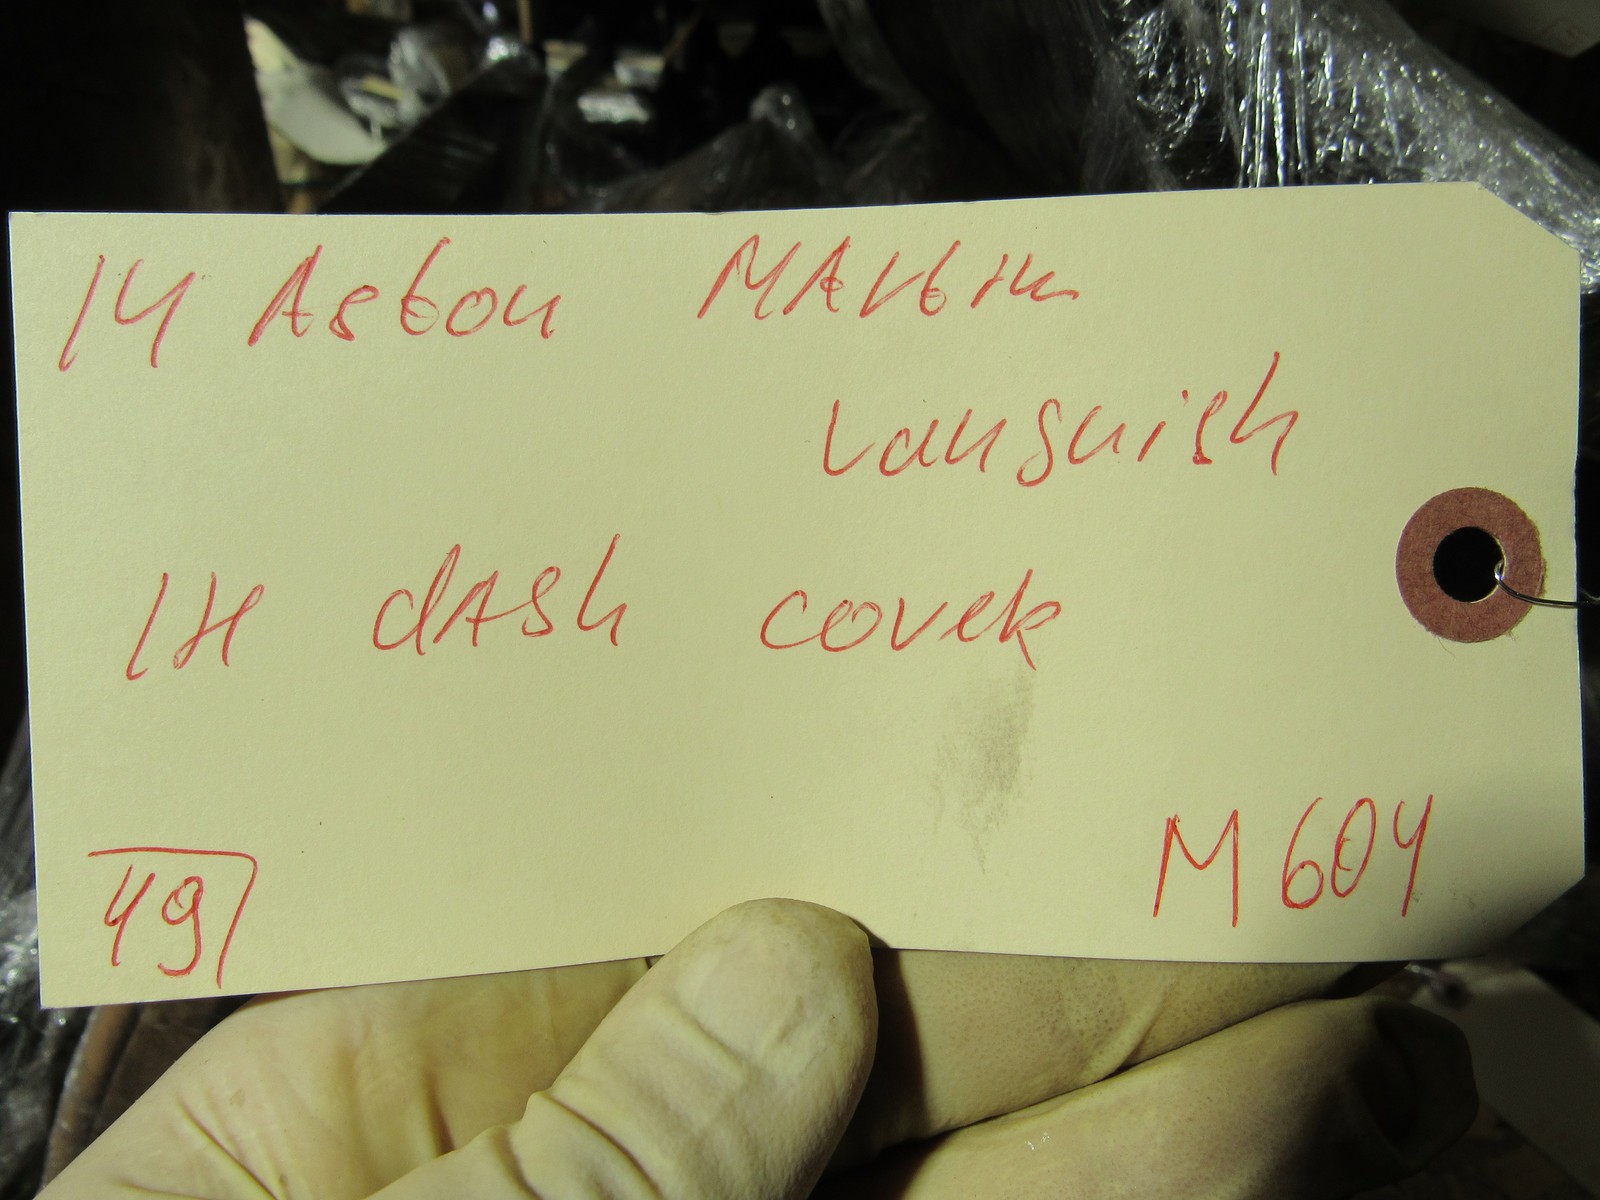 14 Aston MARtin
Vanquish
LH dASh coveR
49
M604